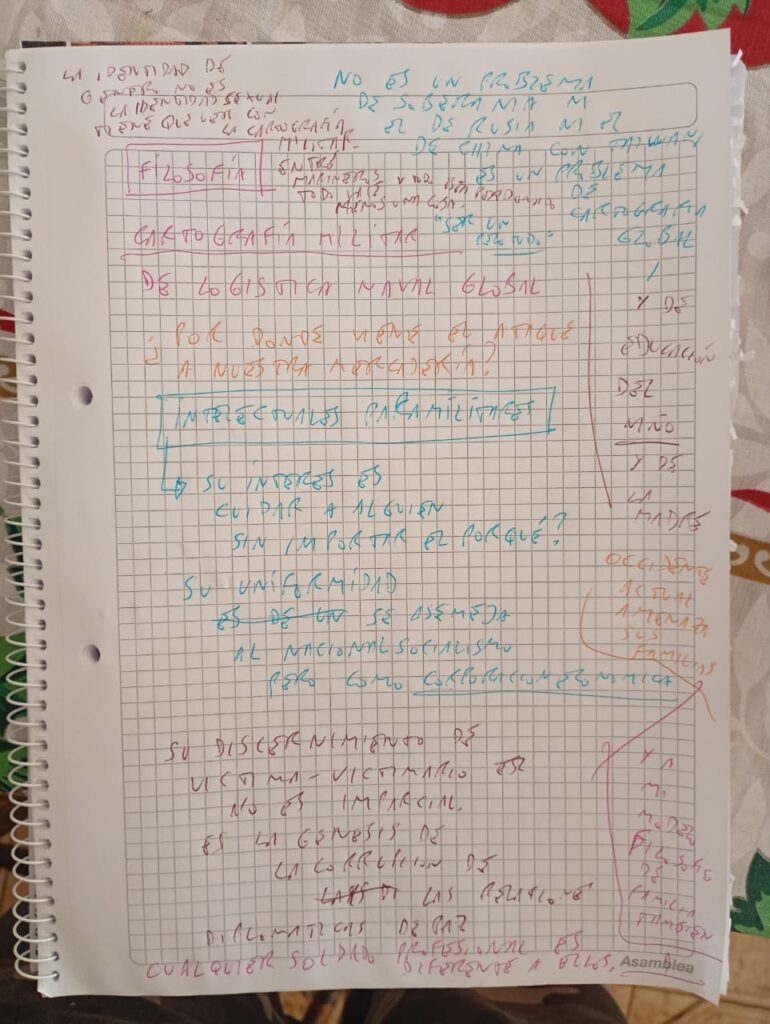 LA IDENTIDAD DE
GENERO NO ES
LA IDENTIDAD SEXUAL
TIENE QUE VER CON
LA CARTOGRAFÍA
MILITAR
ENTRE
MARINEROS Y NO
TODO
MENOS UNA COSA:
"SER UN
NO ES UN PROBLEMA
DE SOBERANIA NI
EL DE RUSIA NI EL
DE CHINA CON TAIWAN
ES UN PROBLEMA
DE
CARTOGRAFIA
GLOBAL
Y DE
EDUCACIÓN
DEL
NIÑO
Y DE
LA
MADRE
FILOSOFIA
CARTOGRAFÍA MILITAR
DE LOGISTICA NAVAL GLOBAL
¿POR DONDE VIENE EL ATAQUE
A NUESTRA MERCADERIA?
INTELECTUALES PARAMILITARES
SU INTERES ES
CUIDAR A ALGUIEN
SIN IMPORTAR EL PORQUÉ?
SU UNIFORMIDAD
ES DE UN SE ASEMEJA
AL NACIONALSOCIALISMO
PERO COMO CORPORACION ECONOMICA
OCCIDENTE
ACTUAL
AMENAZA
SUS
FAMILIAS
Y A
MI
MODELO
DE
FAMILIA
TAMBIEN
SU DISCERNIMIENTO DE
VICTIMA-VICTIMARIO
NO ES IMPARCIAL.
ES LA GENESIS DE
LA CORRUPCION DE
LAS RELACIONE
DIPLOMATICAS DE PAZ
CUALQUIER SOLDADO PROFESIONAL ES
DIFERENTE A ELLOS.
Asamblea